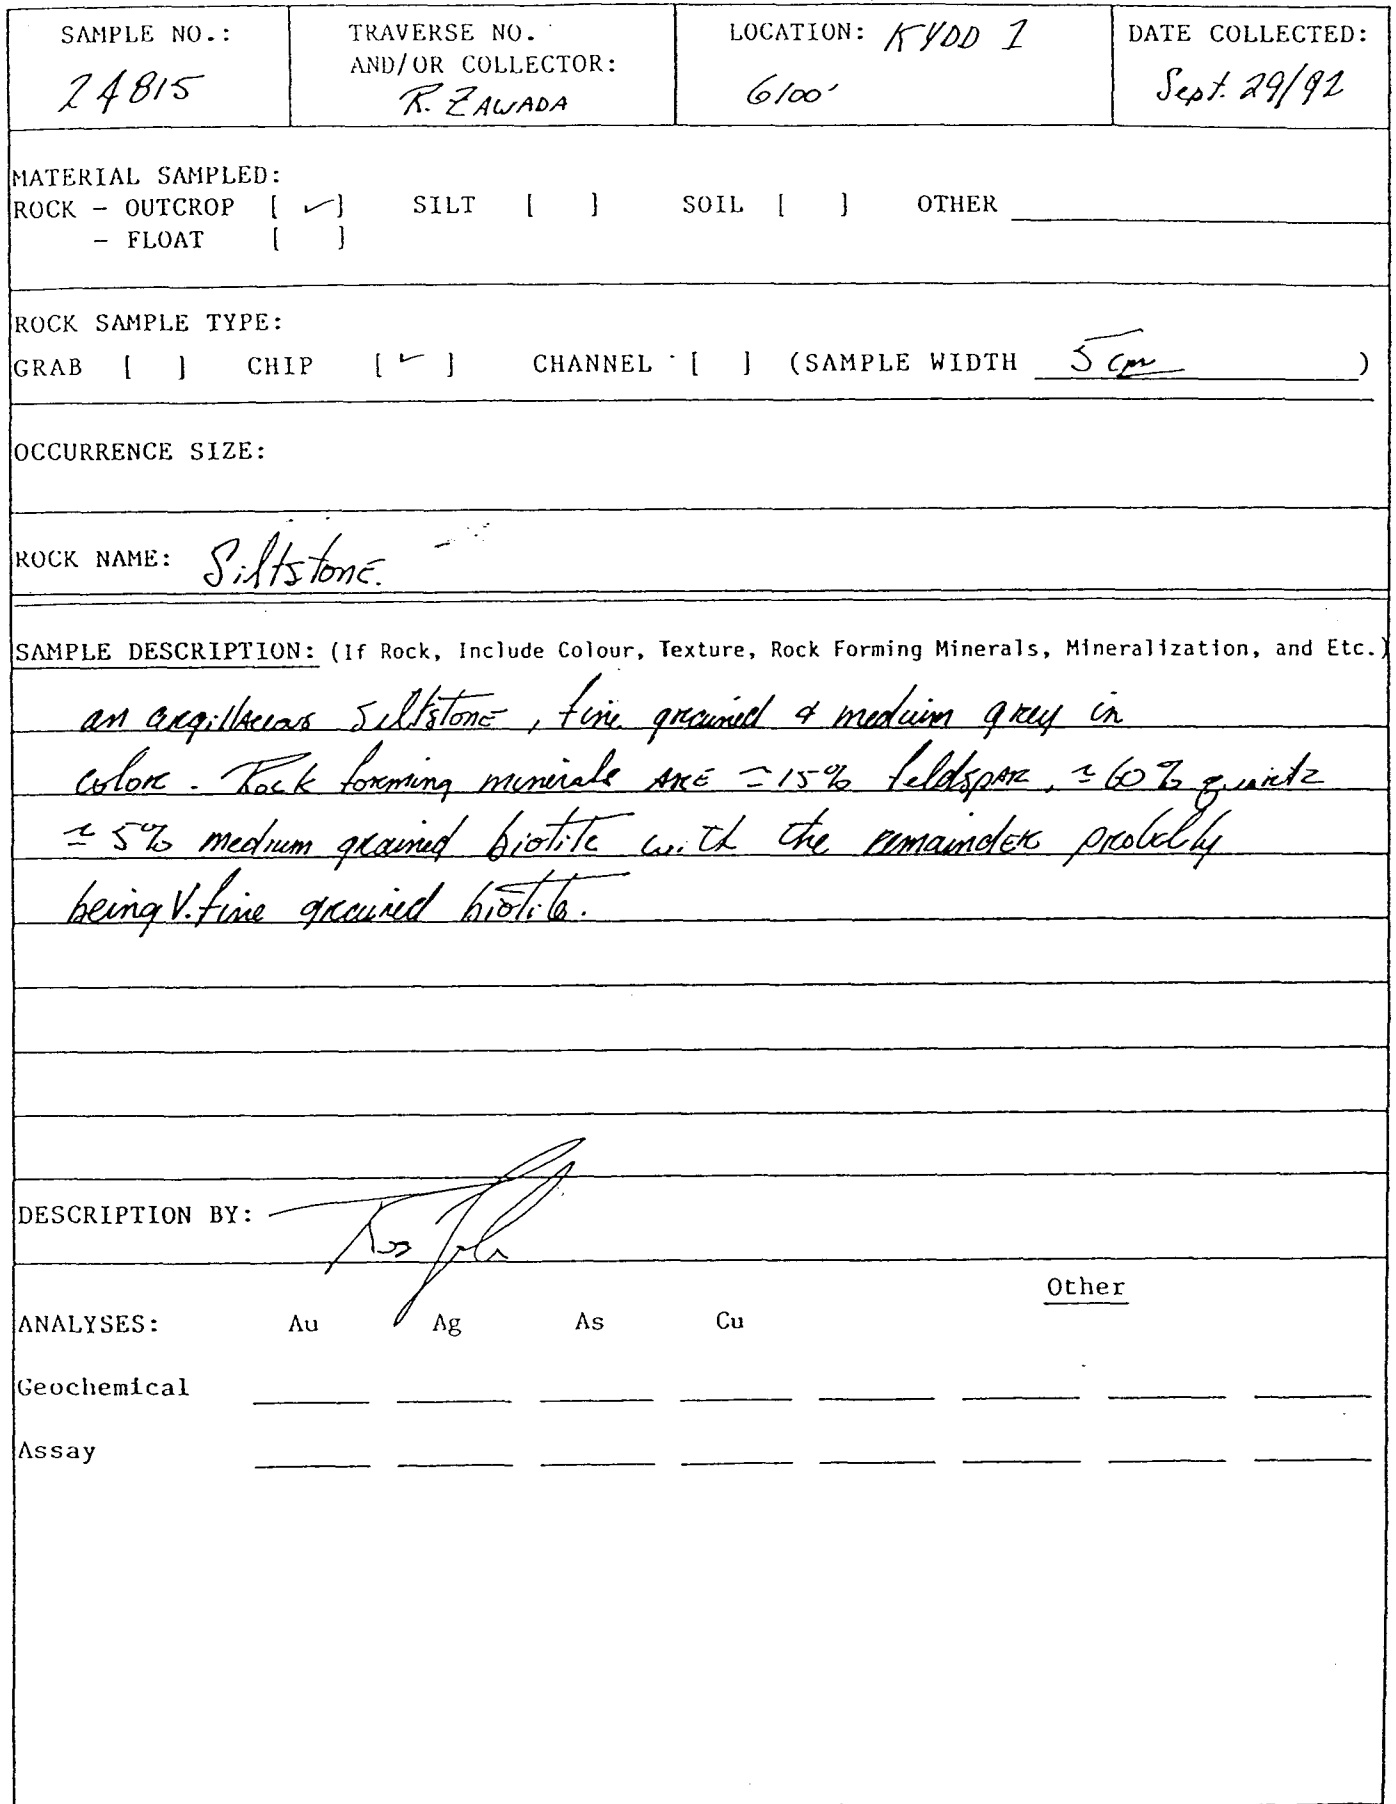 SAMPLE NO.: TRAVERSE NO. LOCATION: KYDD 1 DATE COLLECTED:
AND/OR COLLECTOR:
24815 R. ZAWADA 6100' Sept. 29/92
MATERIAL SAMPLED:
ROCK - OUTCROP [ ✓ ] SILT [ ] SOIL [ ] OTHER
- FLOAT [ ]
ROCK SAMPLE TYPE:
GRAB [ ] CHIP [ ✓ ] CHANNEL [ ] (SAMPLE WIDTH 5 cm )
OCCURRENCE SIZE:
ROCK NAME: Siltstone.
SAMPLE DESCRIPTION: (If Rock, Include Colour, Texture, Rock Forming Minerals, Mineralization, and Etc.)
an argillaceous siltstone, fine grained & medium grey in
color. Rock forming minerals are ≃15% feldspar, ≃60% quartz
≃5% medium grained biotite with the remainder probably
being V. fine grained biotite.
DESCRIPTION BY:
Other
ANALYSES: Au Ag As Cu
Geochemical
Assay